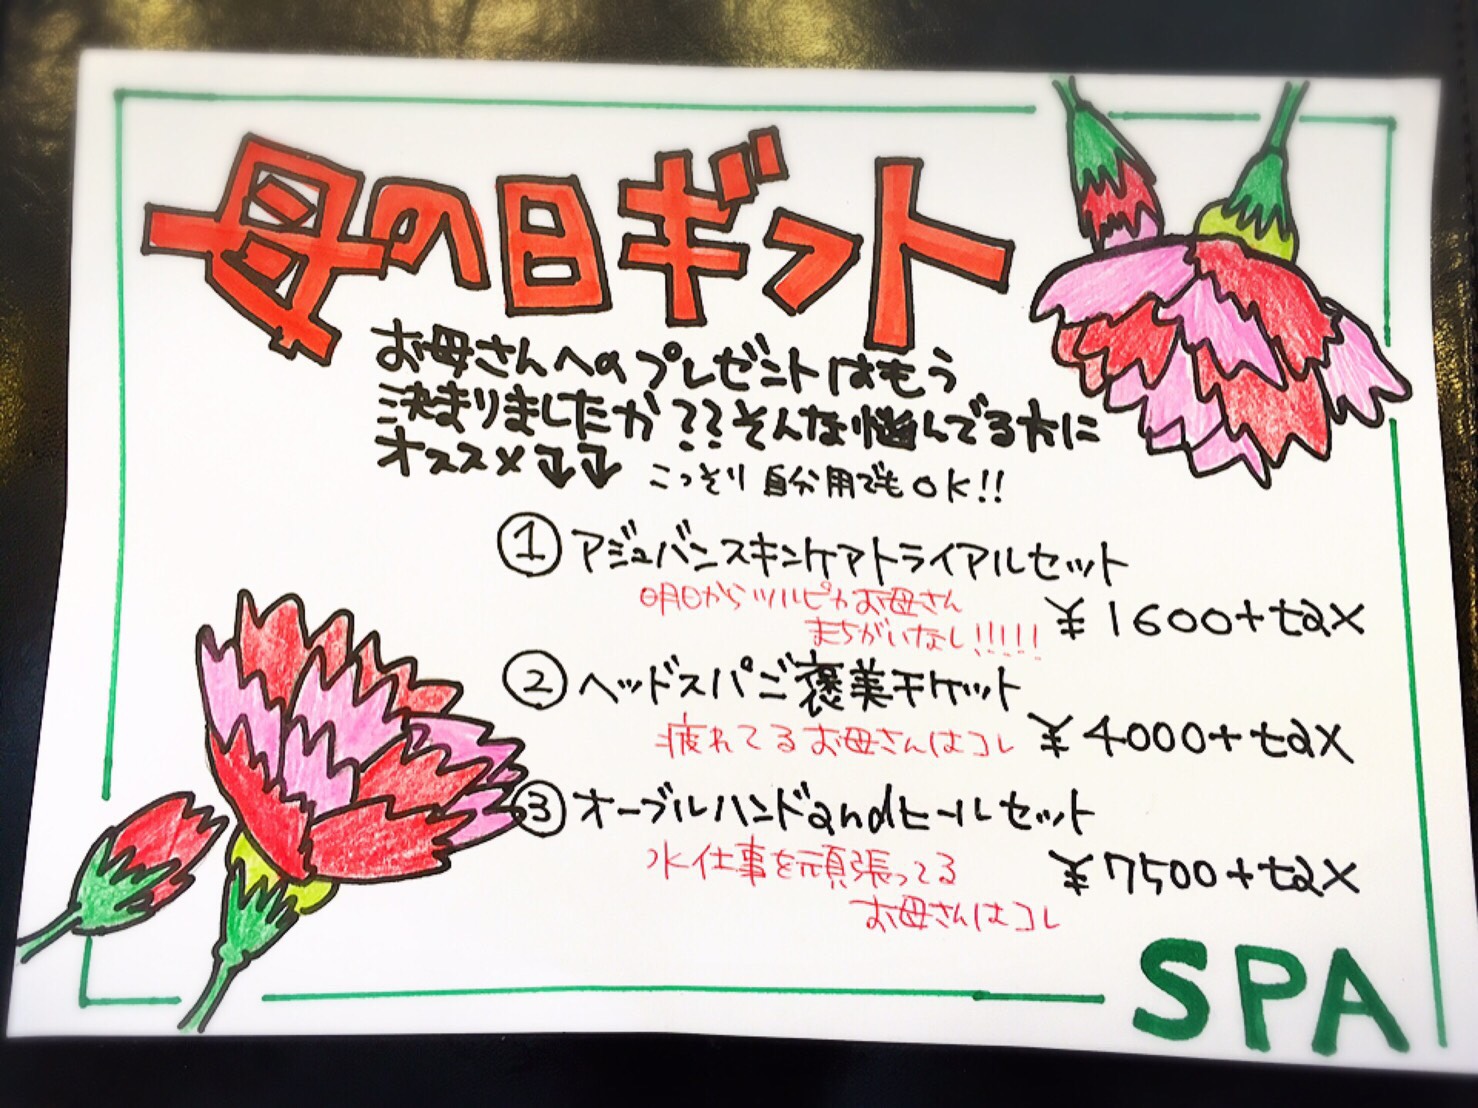 母の日ギフト
お母さんへのプレゼントはもう
決まりましたか??そんな悩んでる方に
オススメ↓↓ こっそり自分用でもOK!!
①アジュバンスキンケアトライアルセット
明日からツルピカお母さん
まちがいなし!!!!!
¥1600+tax
②ヘッドスパご褒美チケット
疲れてるお母さんはコレ ¥4000+tax
③オーブルハンドandヒールセット
水仕事を頑張ってる
お母さんはコレ
¥7500+tax
SPA